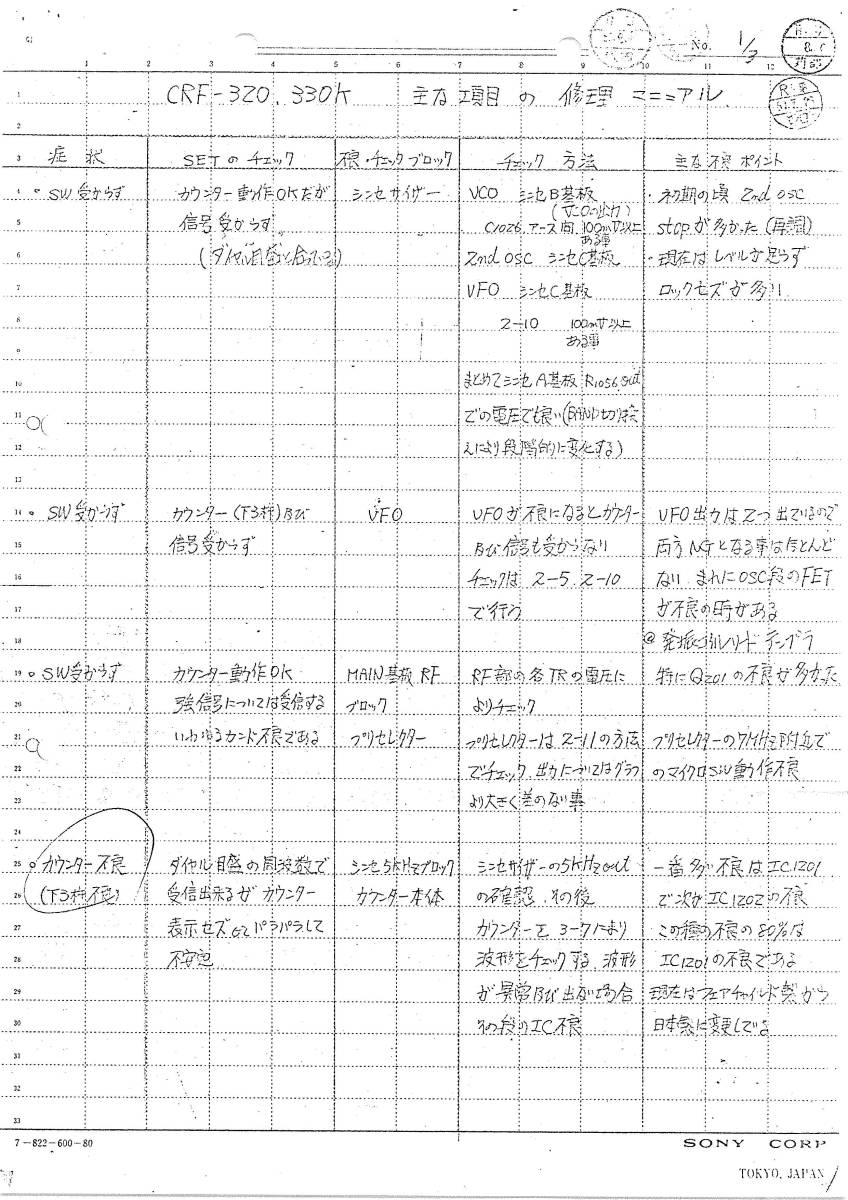 No. 1/3
CRF-320.330K 主な項目の修理マニュアル
症状 SETのチェック 不良・チェックブロック チェック方法 主な不良ポイント
SW受からず
カウンター動作OKだが
信号受からず
(ダイヤル目盛と合っている)
シンセサイザー
VCO シンセB基板
(VCOの出力)
C1026.アース間.100mV以上
ある事
2nd OSC シンセC基板
VFO シンセC基板
2-10 100mV以上
ある事
まとめてシンセA基板 R1056.out
での電圧でも良い(BAND切り換
えにより段階的に変化する)
・初期の頃 2nd OSC
stopが多かった(再調)
・現在はレベルが足らず
ロックセズが多い
SW受からず
カウンター(下3桁)及び
信号受からず
VFO
VFOが不良になるとカウンター
及び信号も受からない
チェックは 2-5.2-10
で行う
VFO出力は2つ出ているので
両方NGとなる事はほとんど
ない まれにOSC段のFET
が不良の時がある
@発振コイルリード テンプラ
SW受からず
カウンター動作OK
強信号については受信する
いわゆるカンド不良である
MAIN基板 RF
ブロック
プリセレクター
RF部の各TRの電圧に
よりチェック
プリセレクターは2-11の方法
でチェック.出力についてはグラフ
より大きく差のない事
特にQ201の不良が多かった
プリセレクターの7MHz附近で
のマイクロSW動作不良
カウンター不良
(下3桁不良)
ダイヤル目盛の周波数で
受信出来るが カウンター
表示セズorパラパラして
不安定
シンセ5KHzブロック
カウンター本体
シンセサイザーの5KHz out
の確認.その後
カウンターを 3-7により
波形をチェックする.波形
が異常及び出ない場合
その段のIC不良
一番多い不良はIC1201
で次が IC1202の不良
この種の不良の80%は
IC1201の不良である
現在はフェアチャイルド製から
日本製に変更している
7-822-600-80
SONY CORP
TOKYO, JAPAN